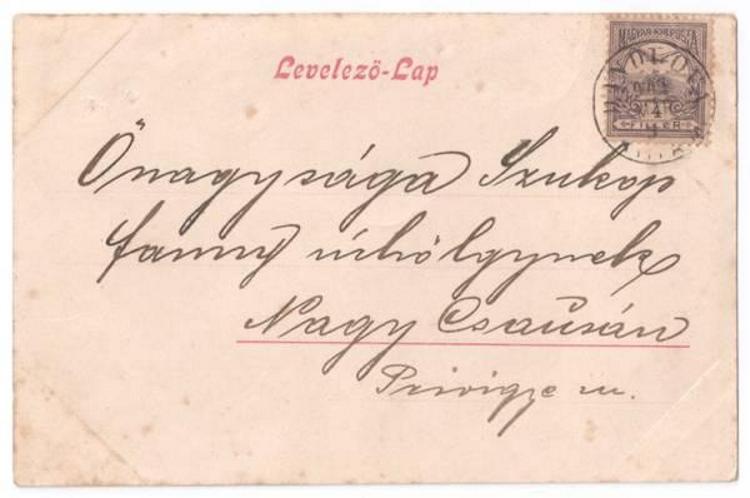 Levelező-Lap
MAGYAR KIR. POSTA
FILLÉR
Őnagysága Szukop
fanny úrhölgynek
Nagy Csausán
Privigye m.